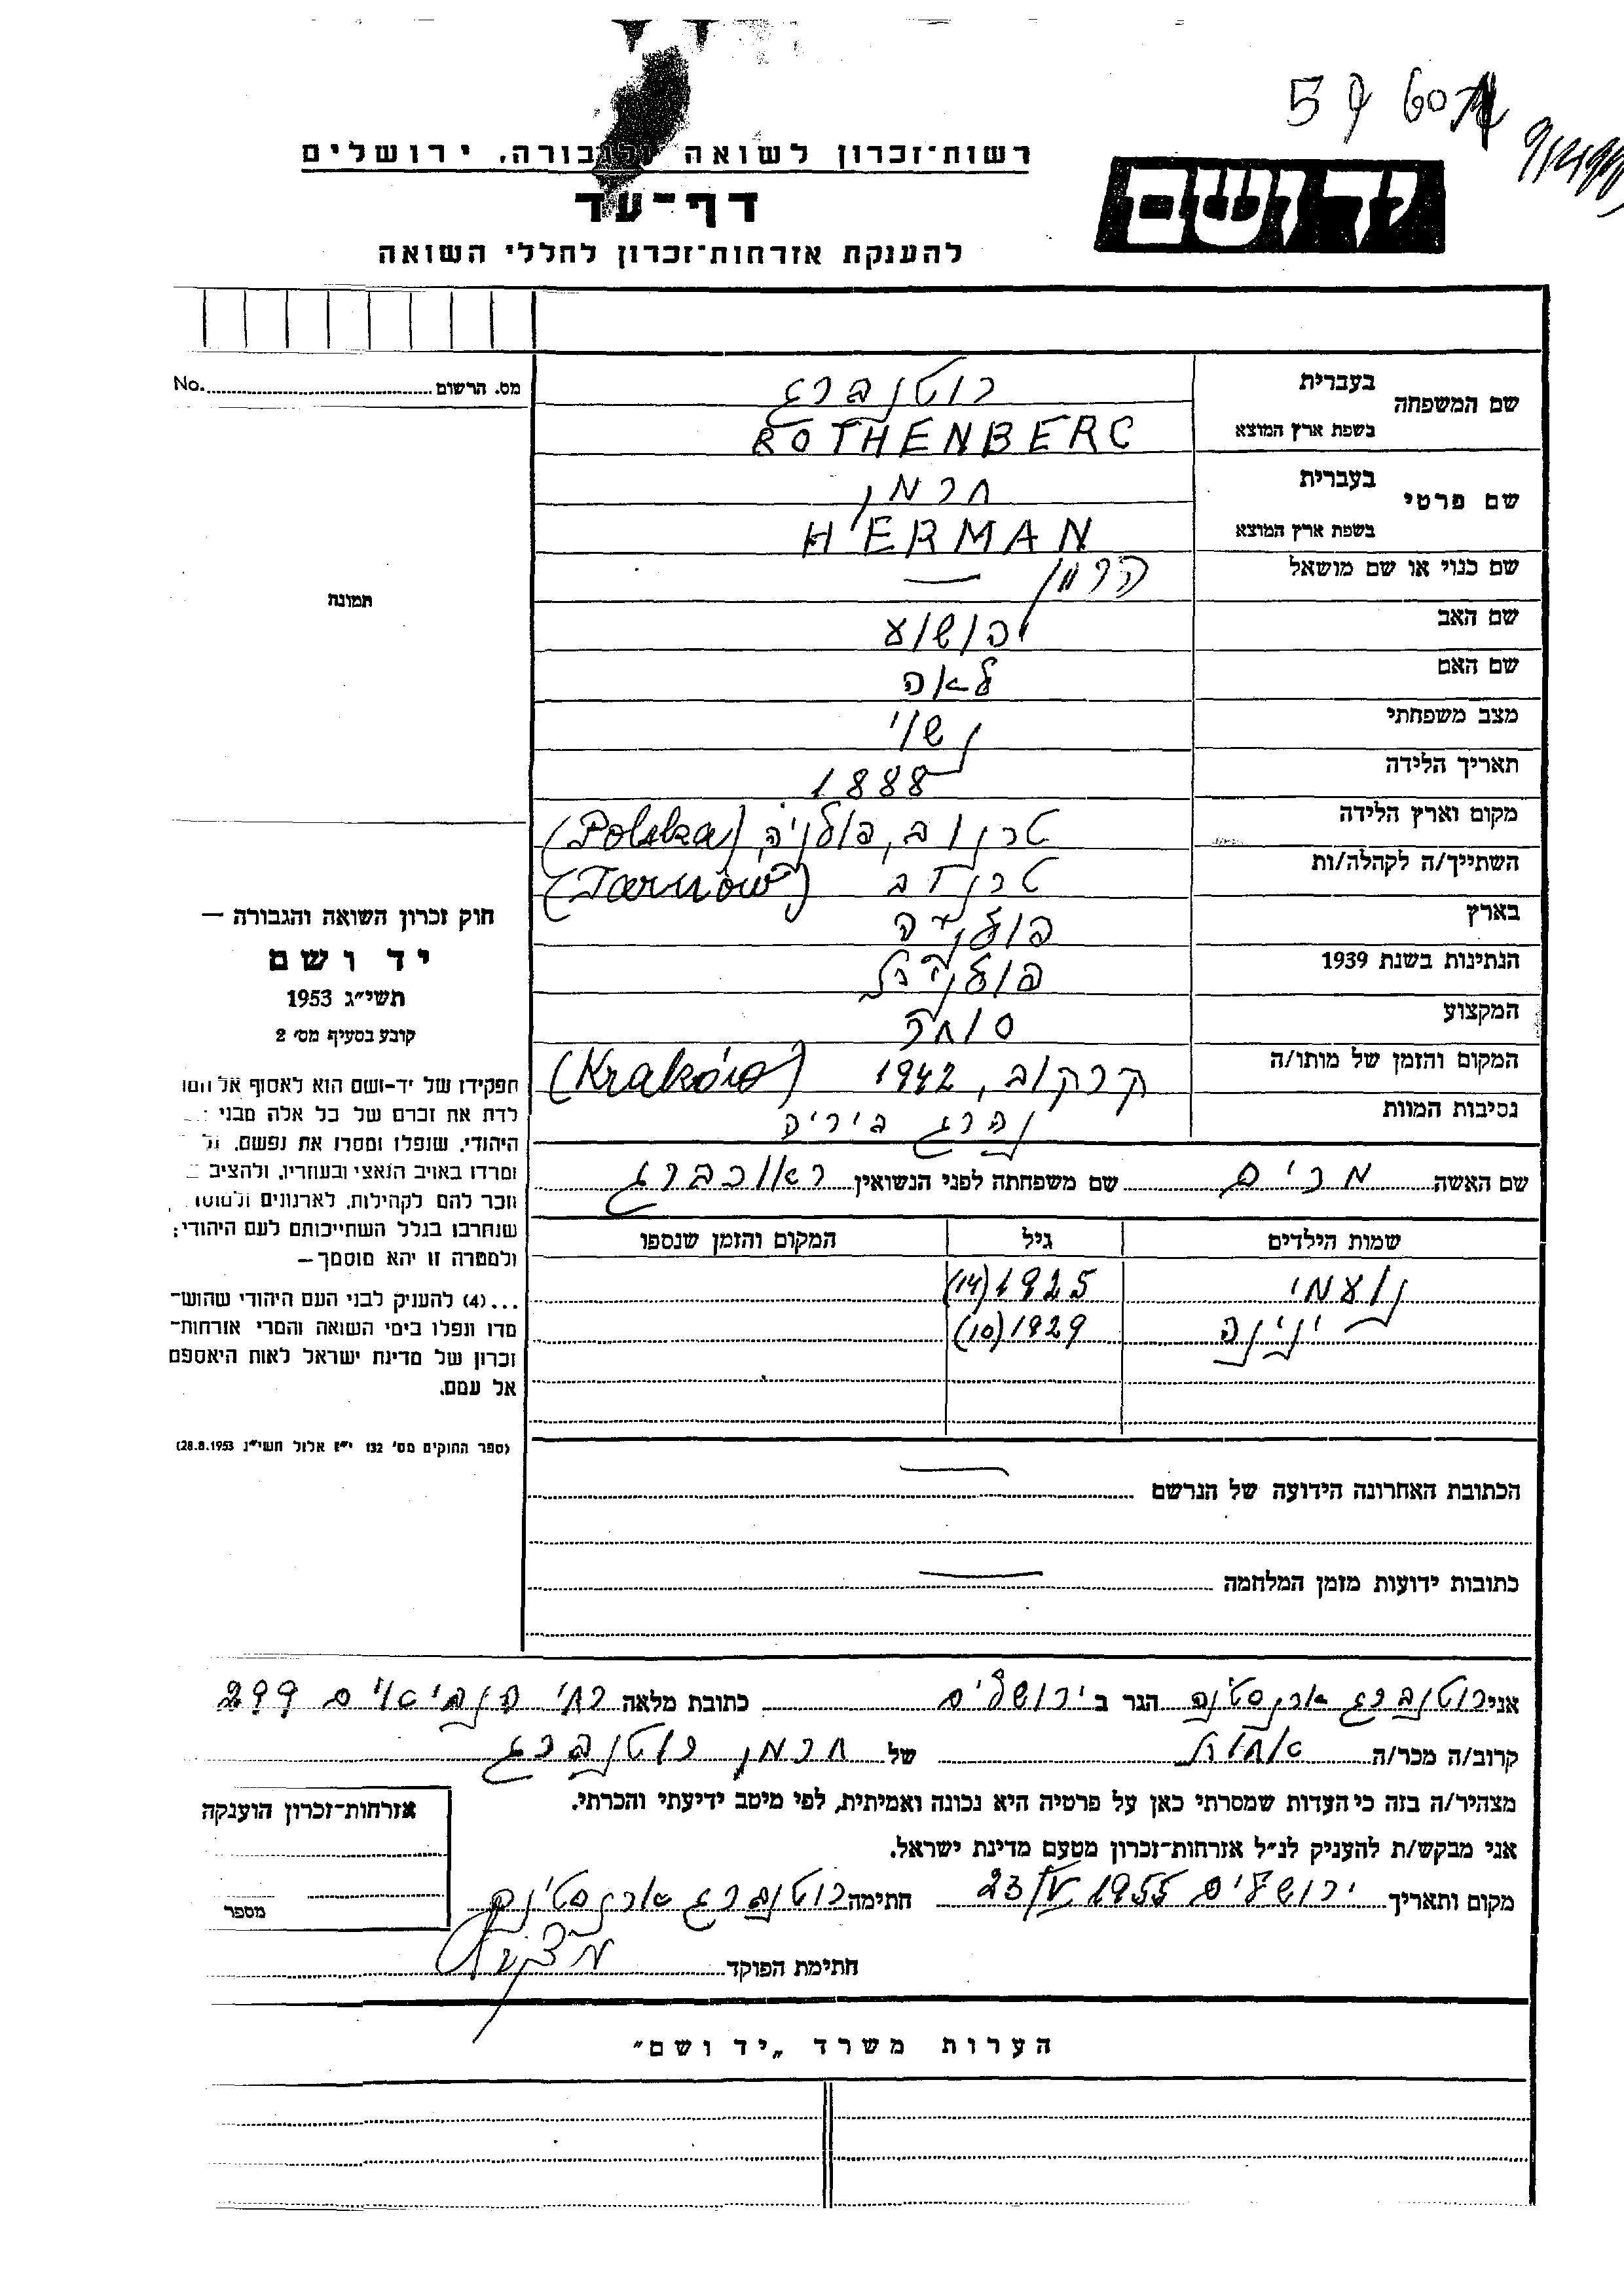 רשות־זכרון לשואה ולגבורה, ירושלים
יד ושם
דף־עד
להענקת אזרחות־זכרון לחללי השואה
מס. הרשום No.
שם המשפחה בעברית רוטנברג
בשפת ארץ המוצא ROTHENBERG
שם פרטי בעברית חרמן
בשפת ארץ המוצא HERMAN
שם כנוי או שם מושאל — הרמן
שם האב הושוע
שם האם לאה
מצב משפחתי נשוי
תאריך הלידה 1888
מקום וארץ הלידה טרנוב, פולניה (Polska)
השתייך/ה לקהלה/ות טרנוב (Tarnów)
בארץ פולניה
הנתינות בשנת 1939 פולנית
המקצוע סוחר
המקום והזמן של מותו/ה קרקוב, 1942 (Kraków)
נסיבות המוות נהרג ביריה
שם האשה מרים שם משפחתה לפני הנשואין
שמות הילדים גיל המקום והזמן שנספו
נעמי 1925 (14)
ינינה 1929 (10)
הכתובת האחרונה הידועה של הנרשם —
כתובות ידועות מזמן המלחמה —
תמונה
חוק זכרון השואה והגבורה —
יד ושם
תשי״ג 1953
קובע בסעיף מס׳ 2
תפקידו של יד-ושם הוא לאסוף אל המו
לדת את זכרם של כל אלה מבני
היהודי, שנפלו ומסרו את נפשם,
ומרדו באויב הנאצי ובעוזריו, ולהציב
וזכר להם לקהילות, לארגונים ולמוסד
שנחרבו בגלל השתייכותם לעם היהודי;
ולמטרה זו יהא מוסמך —
...(4) להעניק לבני העם היהודי שהוש־
מדו ונפלו בימי השואה והמרי אזרחות־
זכרון של מדינת ישראל לאות היאספם
אל עמם.
(ספר החוקים מס׳ 132 י״ז אלול תשי״ג 28.8.1953)
אני רוטנברג ארנסטינה הגר ב ירושלים כתובת מלאה רח׳ הנביאים
קרוב/ה מכר/ה אחות של חרמן רוטנברג
מצהיר/ה בזה כי העדות שמסרתי כאן על פרטיה היא נכונה ואמיתית, לפי מיטב ידיעתי והכרתי.
אני מבקש/ת להעניק לנ״ל אזרחות־זכרון מטעם מדינת ישראל.
מקום ותאריך ירושלים 1955 חתימה רוטנברג ארנסטינה
חתימת הפוקד
אזרחות־זכרון הוענקה
מספר
הערות משרד „יד ושם״